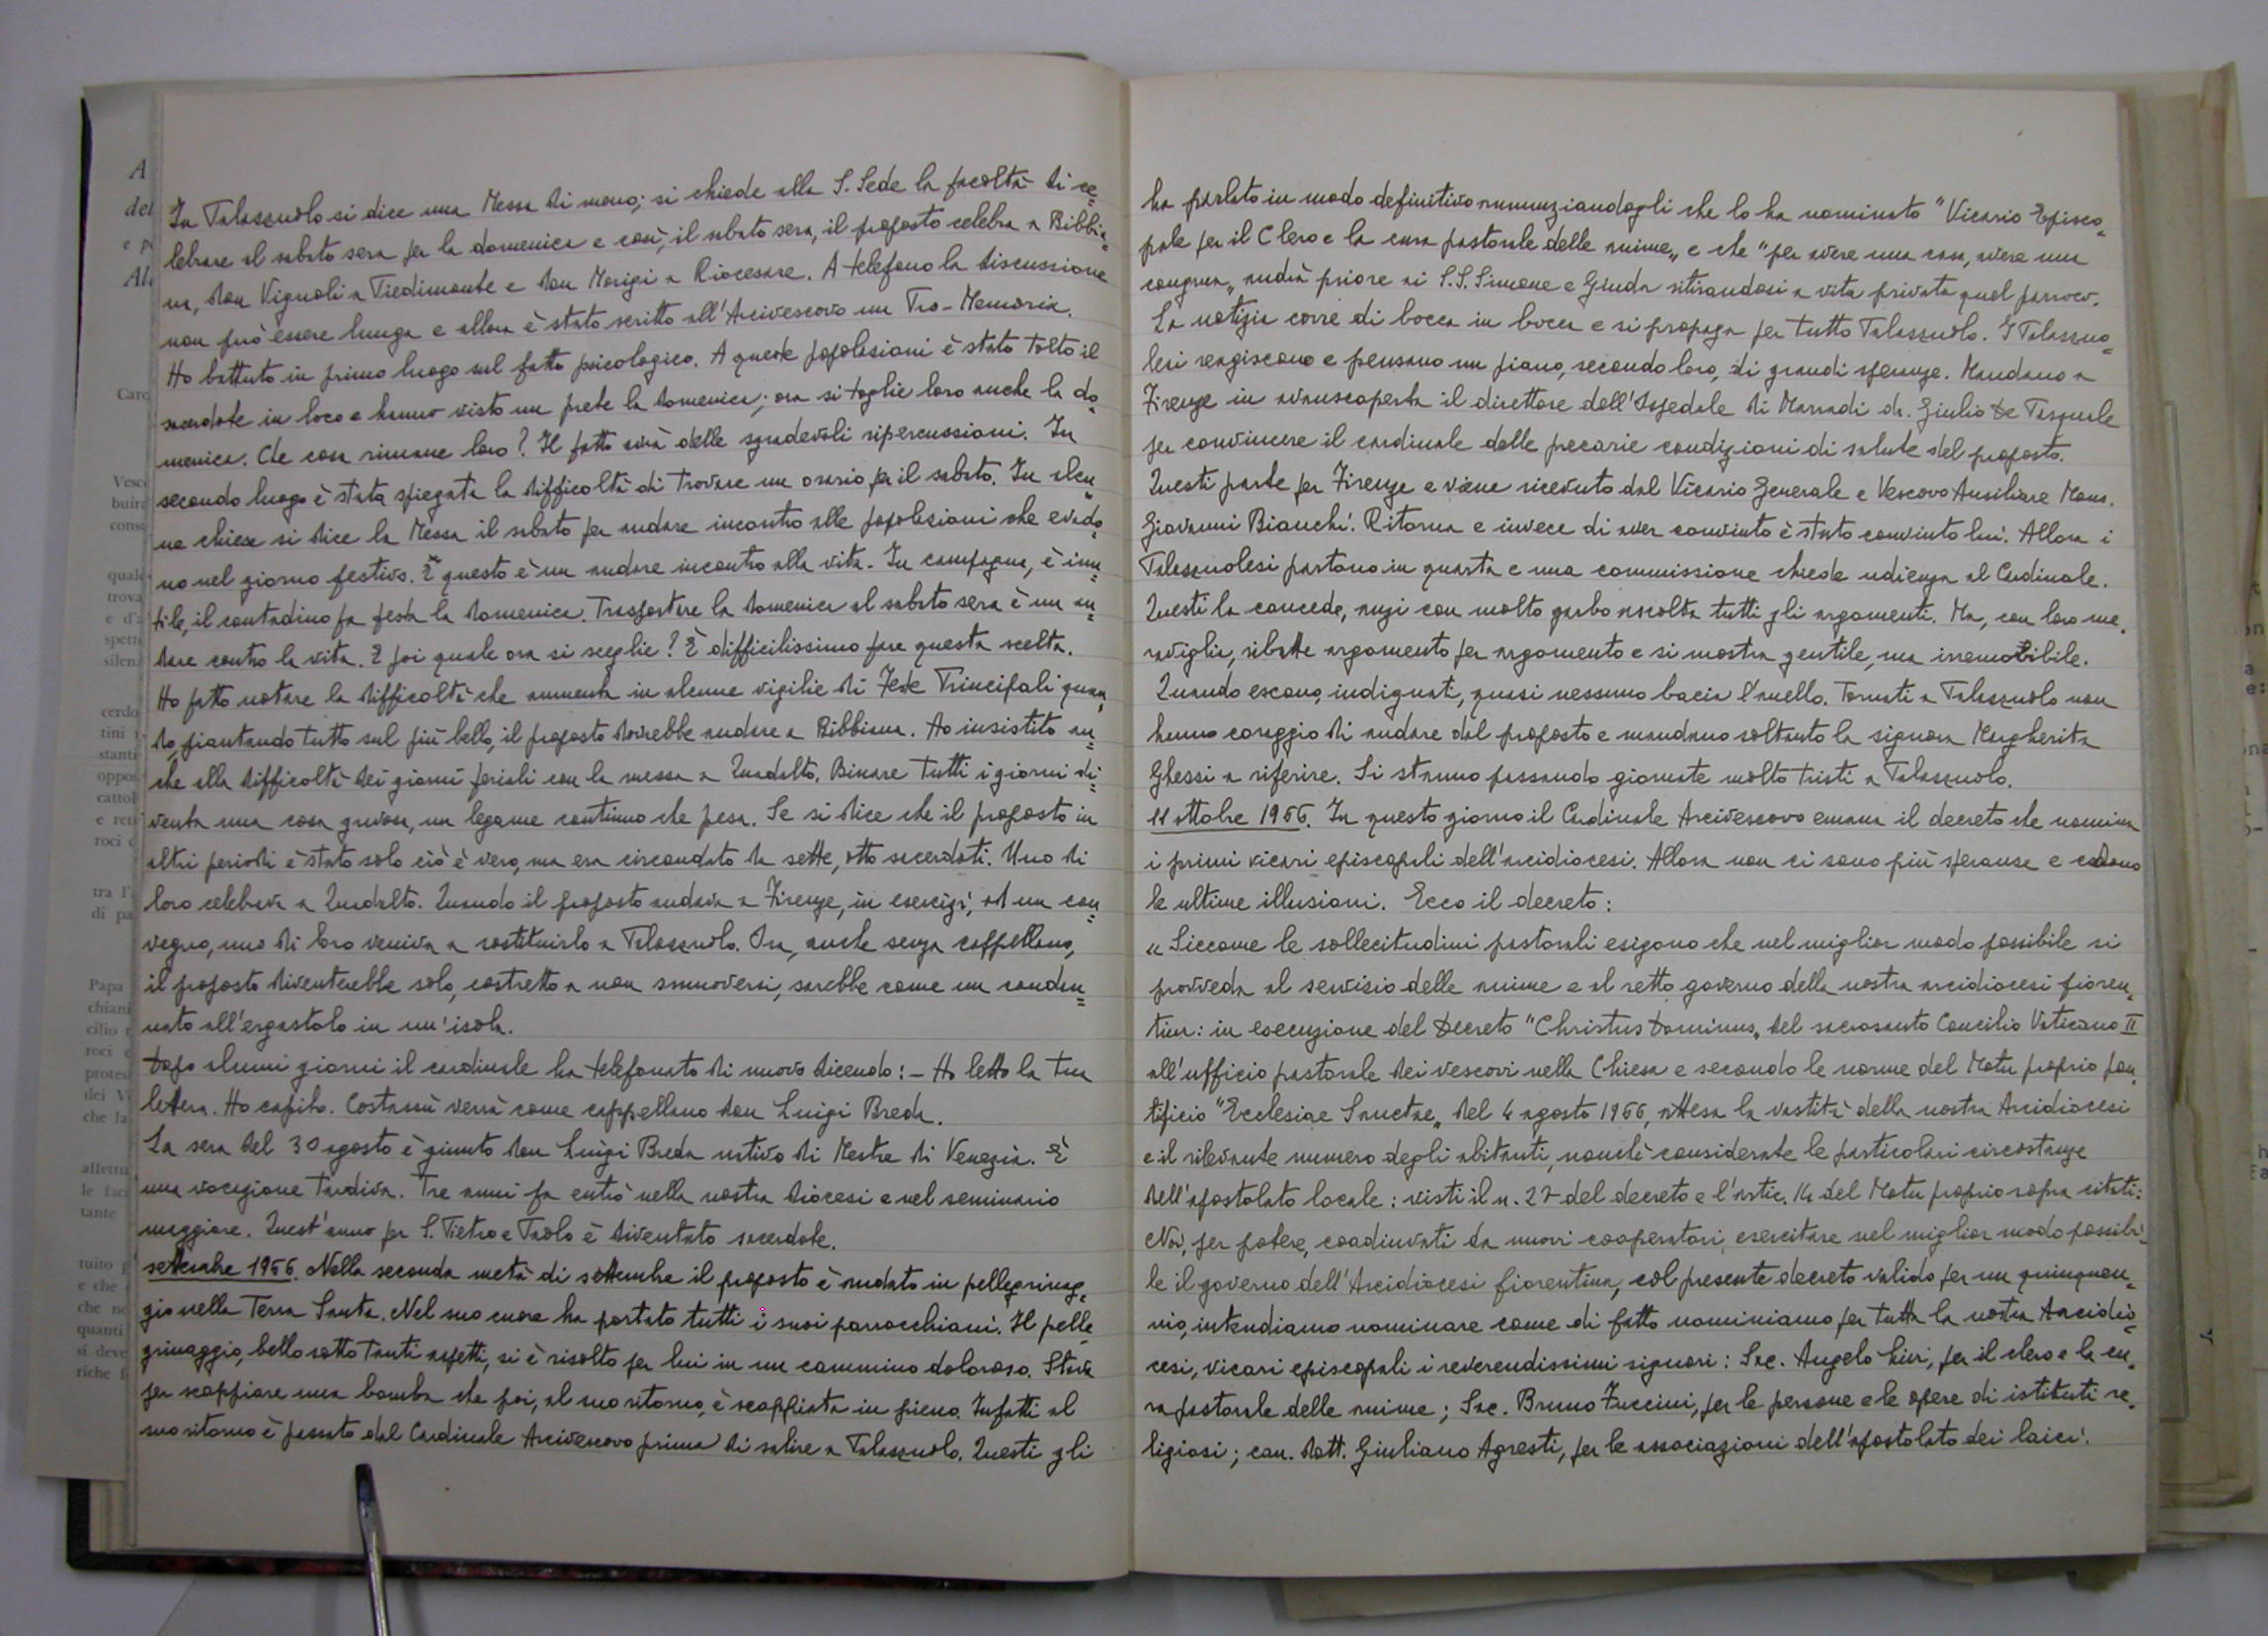 In Palazzuolo si dice una Messa di meno; si chiede alla S. Sede la facoltà di ce=
lebrare al sabato sera per la domenica e così, il sabato sera, il proposto celebra a Bibbia=
na, don Vignoli a Piedimonte e don Marigi a Riocesare. A telefono la discussione
non può essere lunga e allora è stato scritto all'Arcivescovo un Pro-Memoria.
Ho battuto in primo luogo sul fatto psicologico. A queste popolazioni è stato tolto il
sacerdote in loco e hanno visto un prete la domenica; ora si toglie loro anche la do=
menica. Che cosa rimane loro? Il fatto avrà delle sgradevoli ripercussioni. In
secondo luogo è stata spiegata la difficoltà di trovare un orario per il sabato. In alcu=
ne chiese si dice la Messa il sabato per andare incontro alle popolazioni che evado=
no nel giorno festivo. E questo è un andare incontro alla vita. In campagna, è inu=
tile, il contadino fa festa la domenica. Trasportare la domenica al sabato sera è un an=
dare contro la vita. E poi quale ora si sceglie? È difficilissimo fare questa scelta.
Ho fatto notare la difficoltà che aumenta in alcune vigilie di Feste Principali quan=
do, piantando tutto sul più bello, il proposto dovrebbe andare a Bibbiana. Ho insistito an=
che alla difficoltà dei giorni feriali con la messa a Quadalto. Binare tutti i giorni di=
venta una cosa gravosa, un legame continuo che pesa. Se si dice che il proposto in
altri periodi è stato solo ciò è vero, ma era circondato da sette, otto sacerdoti. Uno di
loro celebrava a Quadalto. Quando il proposto andava a Firenze, in esercizi, ad un con=
vegno, uno di loro veniva a sostituirlo a Palazzuolo. Ora, anche senza cappellano,
il proposto diventerebbe solo, costretto a non smuoversi, sarebbe come un condan=
nato all'ergastolo in un'isola.
Dopo alcuni giorni il cardinale ha telefonato di nuovo dicendo: - Ho letto la tua
lettera. Ho capito. Costassù verrà come cappellano don Luigi Breda.
La sera del 30 agosto è giunto don Luigi Breda nativo di Mestre di Venezia. È
una vocazione tardiva. Tre anni fa entrò nella nostra diocesi e nel seminario
maggiore. Quest'anno per S. Pietro e Paolo è diventato sacerdote.
settembre 1966. Nella seconda metà di settembre il proposto è andato in pellegrinag=
gio nella Terra Santa. Nel suo cuore ha portato tutti i suoi parrocchiani. Il pelle=
grinaggio, bello sotto tanti aspetti, si è risolto per lui in un cammino doloroso. Stava
per scoppiare una bomba che poi, al suo ritorno, è scoppiata in pieno. Infatti al
suo ritorno è passato dal Cardinale Arcivescovo prima di salire a Palazzuolo. Questi gli
ha parlato in modo definitivo annunziandogli che lo ha nominato "Vicario Episco=
pale per il Clero e la cura pastorale delle anime„ e che "per avere una casa, avere una
congrua„ andrà priore ai S.S. Simone e Giuda ritirandosi a vita privata quel parroco.
La notizia corre di bocca in bocca e si propaga per tutto Palazzuolo. I Palazzuo=
lesi reagiscono e pensano un piano, secondo loro, di grandi speranze. Mandano a
Firenze in avanscoperta il direttore dell'Ospedale di Marradi dr. Giulio De Pasquale
per convincere il cardinale delle precarie condizioni di salute del proposto.
Questi parte per Firenze e viene ricevuto dal Vicario Generale e Vescovo Ausiliare Mons.
Giovanni Bianchi. Ritorna e invece di aver convinto è stato convinto lui. Allora i
Palazzuolesi partono in quarta e una commissione chiede udienza al Cardinale.
Questi la concede, anzi con molto garbo ascolta tutti gli argomenti. Ma, con loro me=
raviglia, ribatte argomento per argomento e si mostra gentile, ma irremovibile.
Quando escono, indignati, quasi nessuno bacia l'anello. Tornati a Palazzuolo non
hanno coraggio di andare dal proposto e mandano soltanto la signora Margherita
Ghessi a riferire. Si stanno passando giornate molto tristi a Palazzuolo.
11 ottobre 1966. In questo giorno il Cardinale Arcivescovo emana il decreto che nomina
i primi vicari episcopali dell'arcidiocesi. Allora non ci sono più speranze e cadono
le ultime illusioni. Ecco il decreto:
"Siccome le sollecitudini pastorali esigono che nel miglior modo possibile si
provveda al servizio delle anime e al retto governo della nostra arcidiocesi fioren=
tina: in esecuzione del Decreto "Christus Dominus„ del sacrosanto Concilio Vaticano II
all'ufficio pastorale dei vescovi nella Chiesa e secondo le norme del Motu proprio pon=
tificio "Ecclesiae Sanctae„ del 6 agosto 1966, attesa la vastità della nostra Arcidiocesi
e il rilevante numero degli abitanti, nonchè considerate le particolari circostanze
dell'apostolato locale: visti il n. 27 del decreto e l'artic. 14 del Motu proprio sopra citati:
Noi, per potere, coadiuvati da nuovi cooperatori, esercitare nel miglior modo possibi=
le il governo dell'Arcidiocesi fiorentina, col presente decreto valido per un quinquen=
nio, intendiamo nominare come di fatto nominiamo per tutta la nostra Arcidio=
cesi, vicari episcopali i reverendissimi signori: Sac. Angelo Livi, per il clero e la cu=
ra pastorale delle anime; Sac. Bruno Puccini, per le persone e le opere di istituti re=
ligiosi; can. dott. Giuliano Agresti, per le associazioni dell'apostolato dei laici.